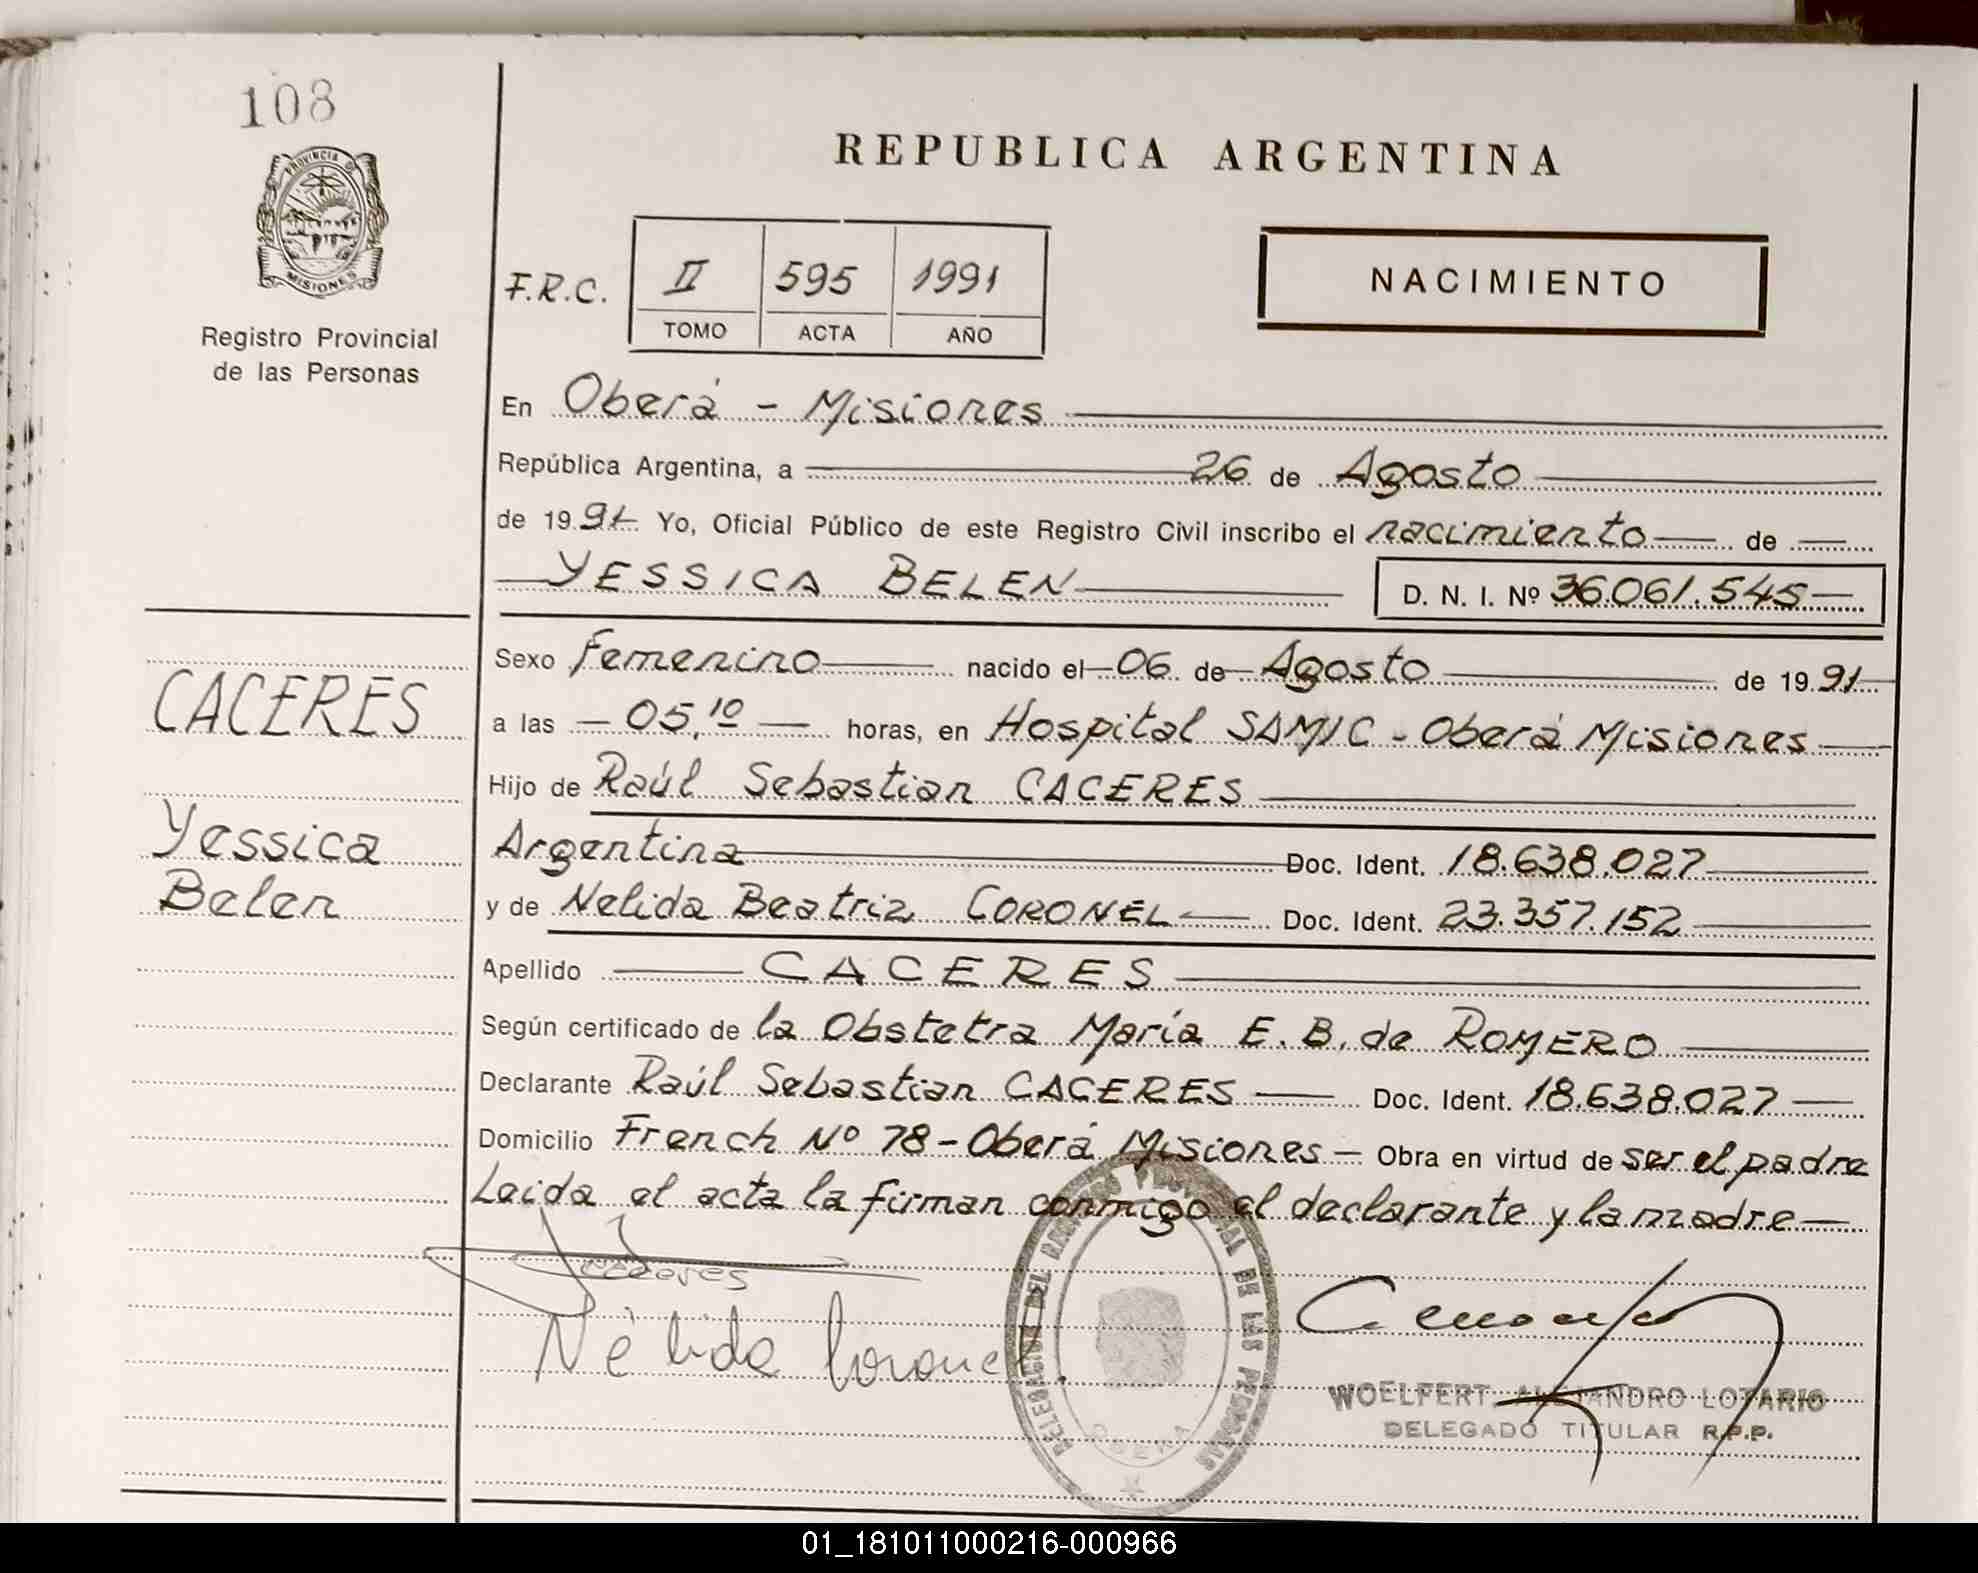 108
PROVINCIA DE
MISIONES
Registro Provincial
de las Personas
REPUBLICA ARGENTINA
F.R.C.
II 595 1991
TOMO ACTA AÑO
NACIMIENTO
En Oberá - Misiones
República Argentina, a 26 de Agosto
de 1991 Yo, Oficial Público de este Registro Civil inscribo el nacimiento de
YESSICA BELEN
D. N. I. Nº 36.061.545
CACERES
Yessica
Belen
Sexo Femenino nacido el 06 de Agosto de 1991
a las 05,10 horas, en Hospital SAMIC - Oberá Misiones
Hijo de Raúl Sebastian CACERES
Argentina Doc. Ident. 18.638.027
y de Nelida Beatriz CORONEL Doc. Ident. 23.357.152
Apellido CACERES
Según certificado de la Obstetra María E. B. de ROMERO
Declarante Raúl Sebastian CACERES Doc. Ident. 18.638.027
Domicilio French Nº 78 - Oberá Misiones - Obra en virtud de ser el padre
Leida el acta la firman conmigo el declarante y la madre
Nélida Coronel
DELEGACION DEL REGISTRO PROVINCIAL DE LAS PERSONAS
OBERA
WOELFERT, ALEJANDRO LOTARIO
DELEGADO TITULAR R.P.P.
01_181011000216-000966